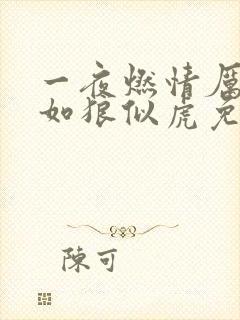 一夜燃情厲
如狼似虎免
陳可